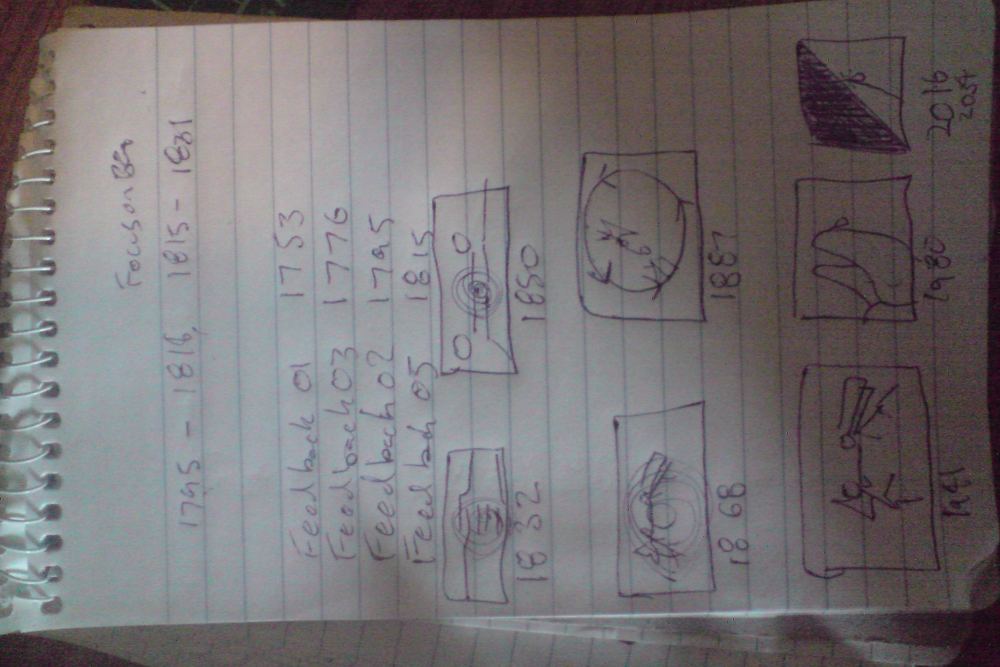 Focus on Ben
1795 - 1816, 1815 - 1831
Feedback 01 1753
Feedback 03 1776
Feedback 02 1795
Feedback 05 1815
1832 1850
1868 1887
1941 1980 2016
2034